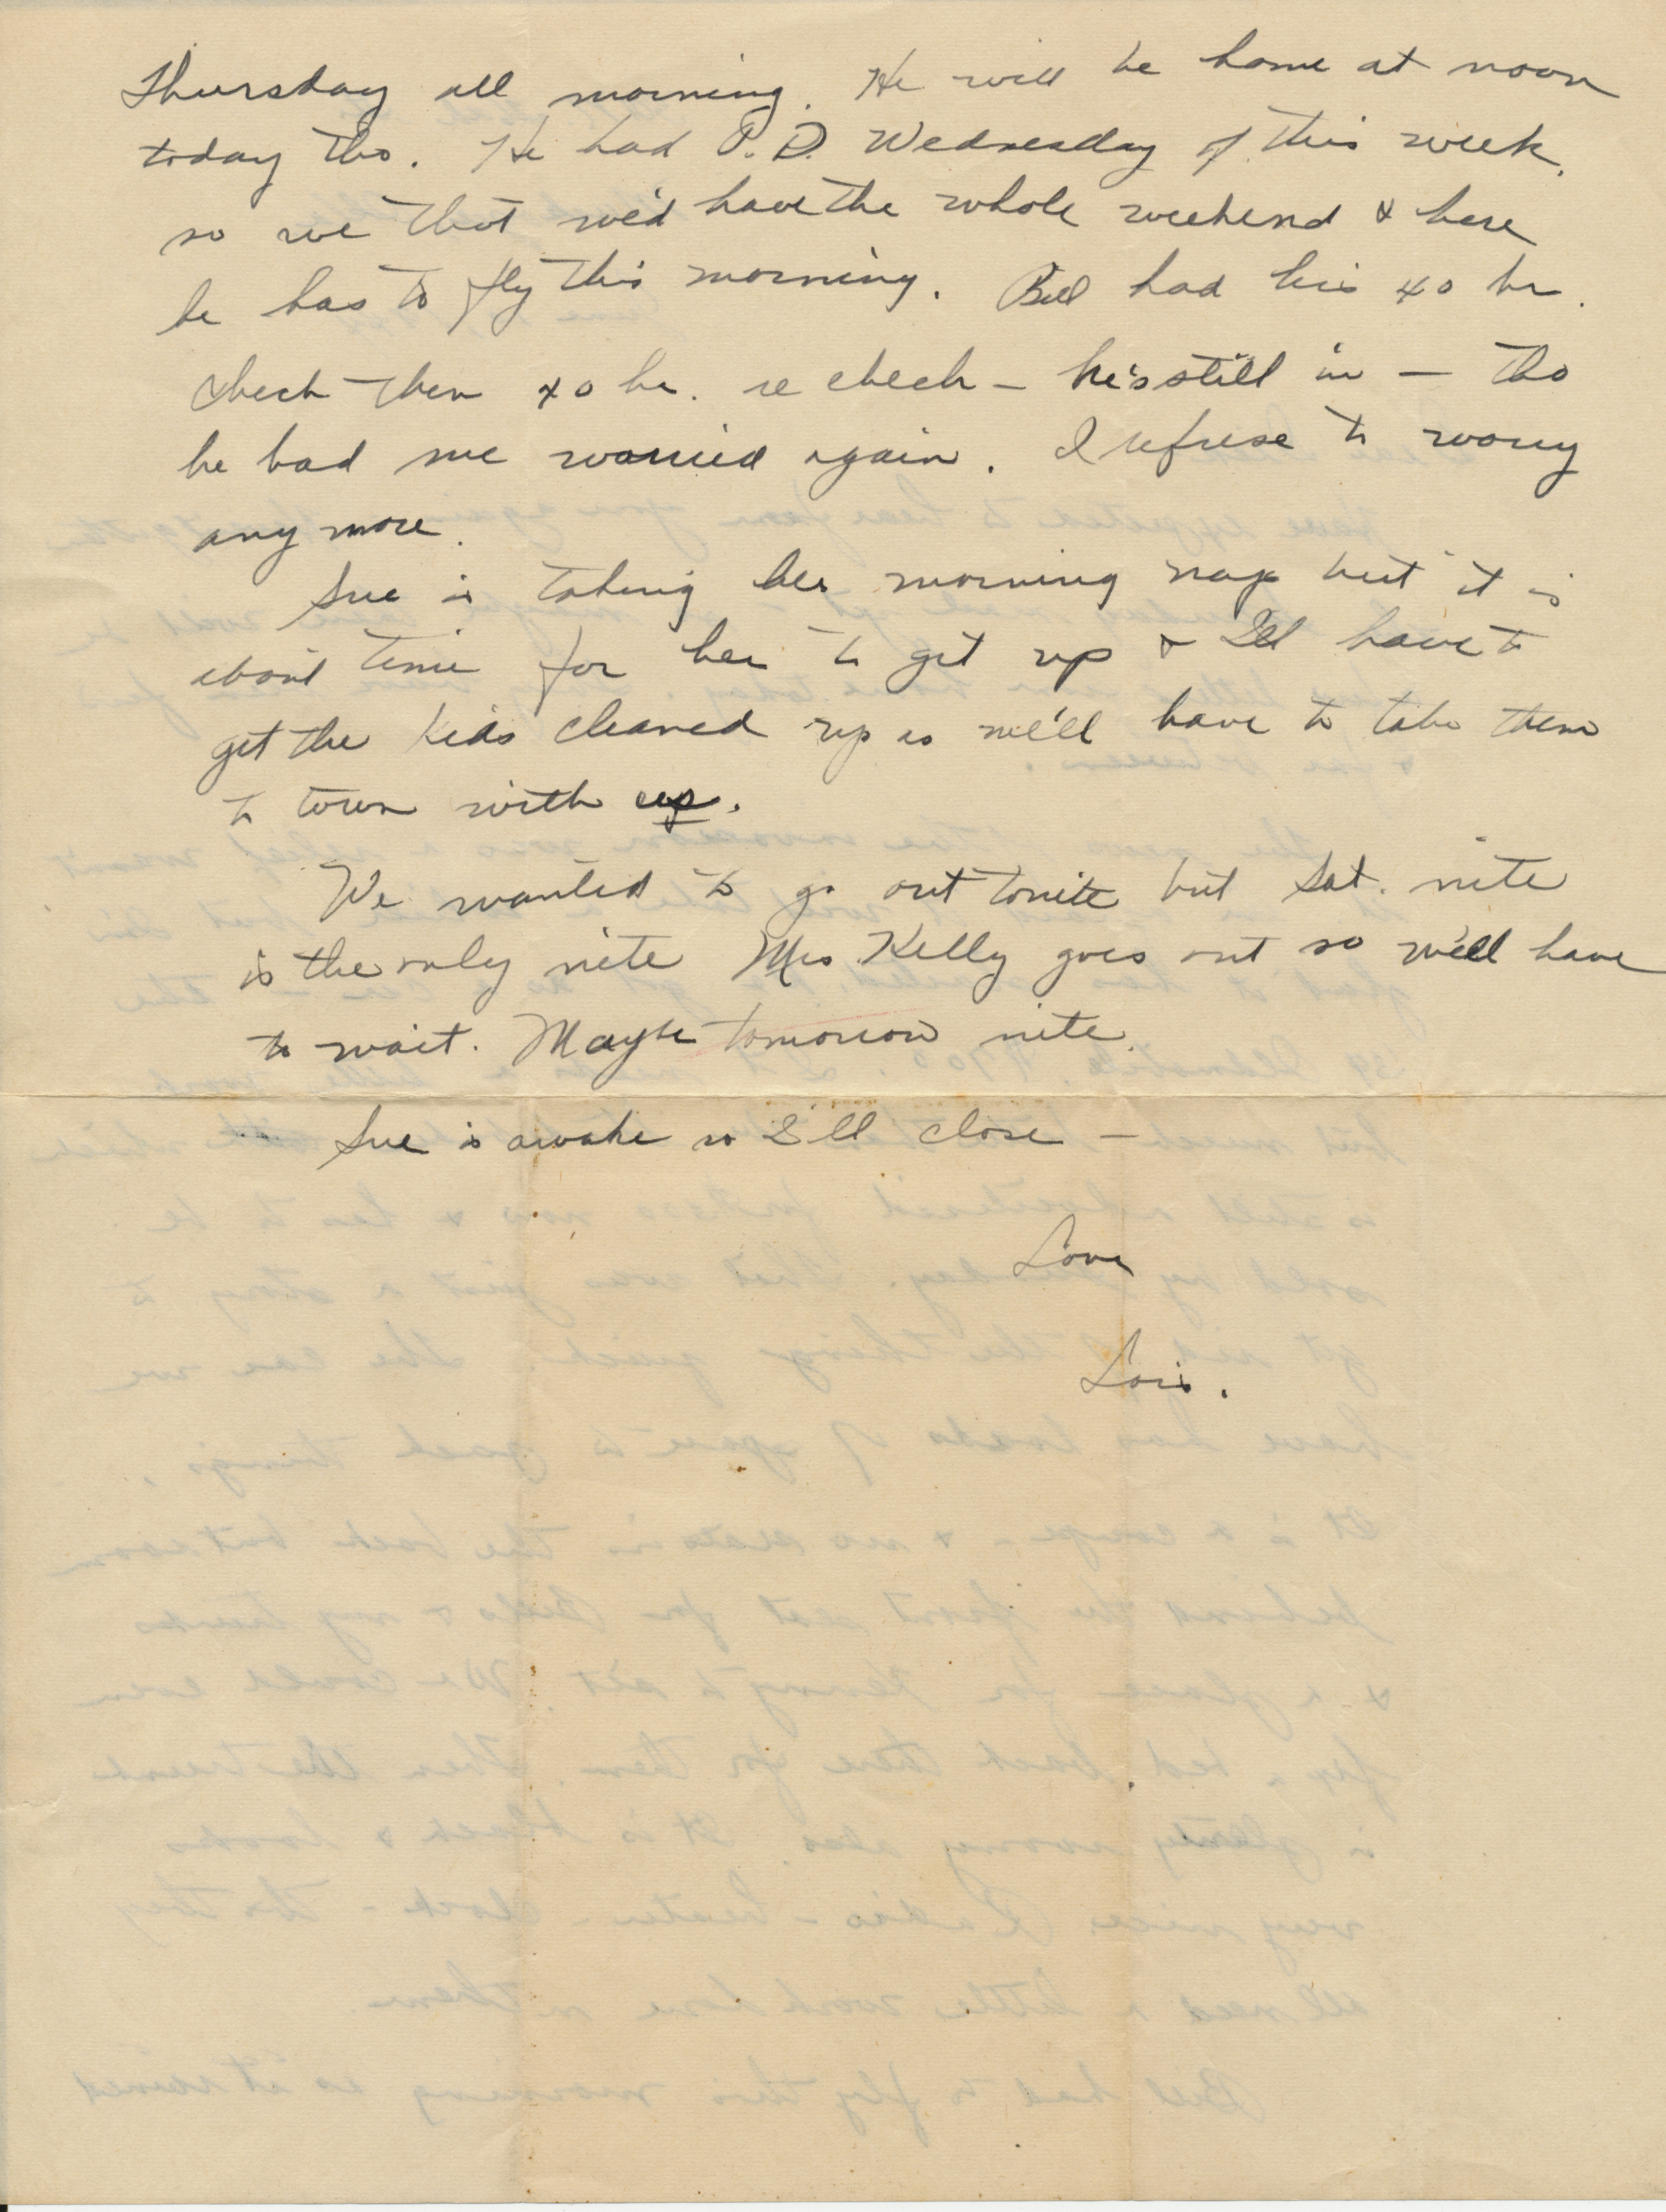 Thursday all morning. He will be home at noon
today tho. He had O.D. Wednesday of this week,
so we thot we'd have the whole weekend & here
he has to fly this morning. Bill had his 40 hr.
check then 40 hr. re check – he's still in – tho
he had me worried again. I refuse to worry
any more.
Sue is taking her morning nap but it is
about time for her to get up & I'll have to
get the kids cleaned up as we'll have to take them
to town with us.
We wanted to go out tonite but Sat. nite
is the only nite Mrs Kelly goes out so we'll have
to wait. Maybe tomorrow nite.
Sue is awake so I'll close –
Love
Lois.